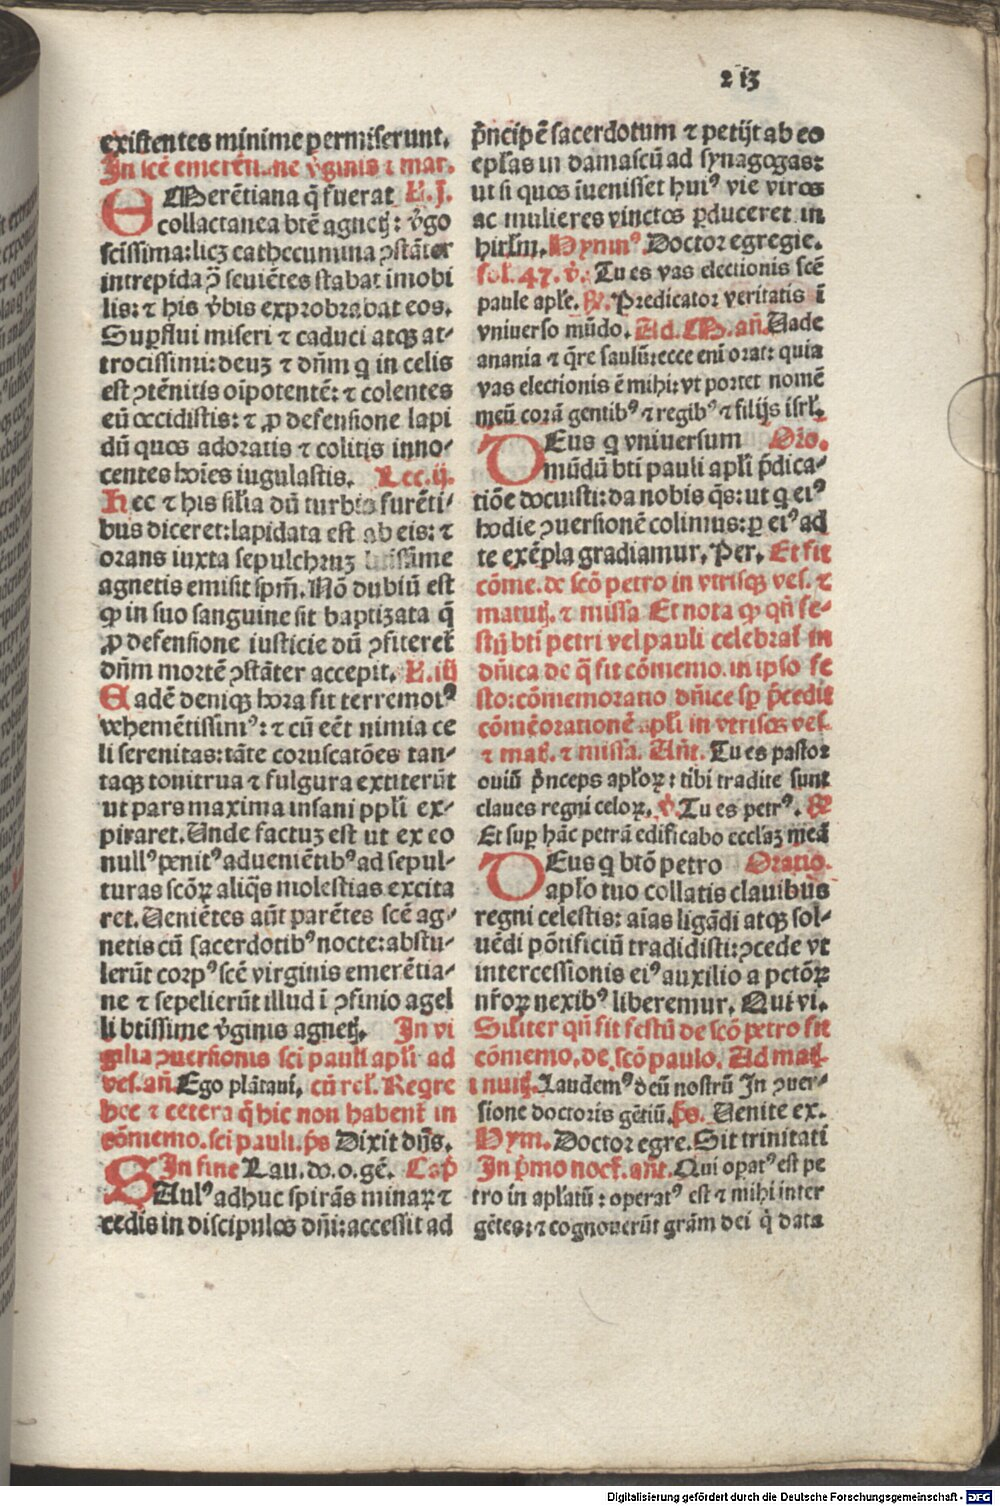 213
existentes minime permiserunt.
In scē emerētiane v̄ginis ⁊ mar.
EMerētiana q̄ fuerat L.J.
collactanea btē agnetꝭ: v̄go
scissima: licꝫ cathecumina ꝯstāter
intrepida ꝓ̄ seuiētes stabat imobi
lis: ⁊ his v̄bis exprobrabat eos.
Suꝑflui miseri ⁊ caduci atqꝫ at-
trocissimi: deuꝫ ⁊ dn̄m q in celis
est ꝯtēnitis oīpotentē: ⁊ colentes
eū occidistis: ⁊ ꝓ defensione lapi
dū quos adoratis ⁊ colitis inno-
centes hoīes iugulastis. Lec.ij.
Hec ⁊ his silia dū turbis furēti-
bus diceret: lapidata est ab eis: ⁊
orans iuxta sepulchrnꝫ btissime
agnetis emisit spm̄. Nō dubiū est
ꝙ in suo sanguine sit baptizata q̄
ꝓ defensione iusticie dū ꝯfiteret̄
dn̄m mortē ꝯstāter accepit. L.iij
Eadē deniqꝫ hora fit terremotꝰ
vehemētissimꝰ: ⁊ cū eēt nimia ce
li serenitas: tāte coruscatōes tan-
taqꝫ tonitrua ⁊ fulgura extiterūt
ut pars maxima insani ppl̄i ex-
piraret. Unde factuꝫ est ut ex eo
nullꝰ penitꝰ adueniētibꝰ ad sepul-
turas scōꝝ aliq̄s molestias excita
ret. Ueniētes aūt parētes scē ag-
netis cū sacerdotibꝰ nocte: abstu-
lerūt corpꝰ scē virginis emerētia-
ne ⁊ sepelierūt illud ī ꝯfinio agel
li btissime v̄ginis agnetꝭ. In vi
gilia ꝯuersionis sci pauli apl̄i ad
ves. an̄. Ego plātaui. cū rel̄. Reqre
hec ⁊ cetera q̄ hic non habent̄ in
cōmemo. sci pauli. p̄s Dixit dn̄s.
In fine Lau. do. o. gē. Cap̄
SAulꝰ adhuc spirās minaꝝ ⁊
cedis in discipulos dn̄i: accessit ad
p̄ncipē sacerdotum ⁊ petijt ab eo
epl̄as in damascū ad synagogas:
ut si quos īuenisset huiꝰ vie viros
ac mulieres vinctos ꝑduceret in
hirl̄m. Hymnꝰ Doctor egregie.
fol. 47. v̄. Tu es vas electionis scē
paule apl̄e. ℞. Predicator veritatis ī
vniuerso mūdo. Ad. M. an̄. Uade
anania ⁊ q̄re saulū: ecce eni orat: quia
vas electionis ē mihi: vt portet nomē
meū corā gentibꝰ ⁊ regibꝰ ⁊ filijs isrl̄.
DEus q vniuersum Oro.
mūdū bti pauli apl̄i p̄dica-
tiōe docuisti: da nobis q̄s: ut q eiꝰ
hodie ꝯuersionē colimus: ꝑ eiꝰ ad
te exēpla gradiamur. Per. Et fit
cōme. de scō petro in vtrisqꝫ ves. ⁊
matutꝭ. ⁊ missa Et nota ꝙ qn̄ fe-
stū bti petri vel pauli celebrat̄ in
dn̄ica de q̄ fit cōmemo. in ipso fe
sto: cōmemoratio dn̄ice sꝑ p̄cedit
cōmēorationē apl̄i in vtrisqꝫ ves.
⁊ mat̄. ⁊ missa. An̄t. Tu es pastor
ouiū p̄nceps apl̄oꝝ: tibi tradite sunt
claues regni celoꝝ. v̄. Tu es petrꝰ. ℞
Et suꝑ hāc petrā edificabo eccl̄aꝫ meā
DEus q btō petro Oratio.
apl̄o tuo collatis clauibus
regni celestis: aīas ligādi atqꝫ sol-
uēdi pōtificiū tradidisti: ꝯcede vt
intercessionis eiꝰ auxilio a pctōꝝ
nr̄oꝝ nexibꝰ liberemur. Qui vi.
Silīter qn̄ fit festū de scō petro fit
cōmemo. de scō paulo. Ad matꝭ-
ī nuitꝭ. Laudemꝰ deū nostrū In ꝯuer-
sione doctoris gētiū. p̄s. Uenite ex.
Hym. Doctor egre. Sit trinitati
In p̄mo noct̄. an̄t. Qui opatꝰ est pe
tro in apl̄atū: operatꝰ est ⁊ mihi inter
gētes: ⁊ cognouerūt gr̄am dei q̄ data
Digitalisierung gefördert durch die Deutsche Forschungsgemeinschaft - DFG